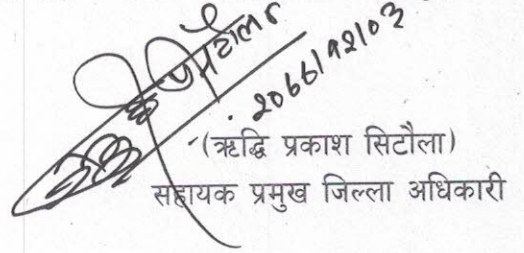 2066/12/03
(ऋद्धि प्रकाश सिटौला)
सहायक प्रमुख जिल्ला अधिकारी